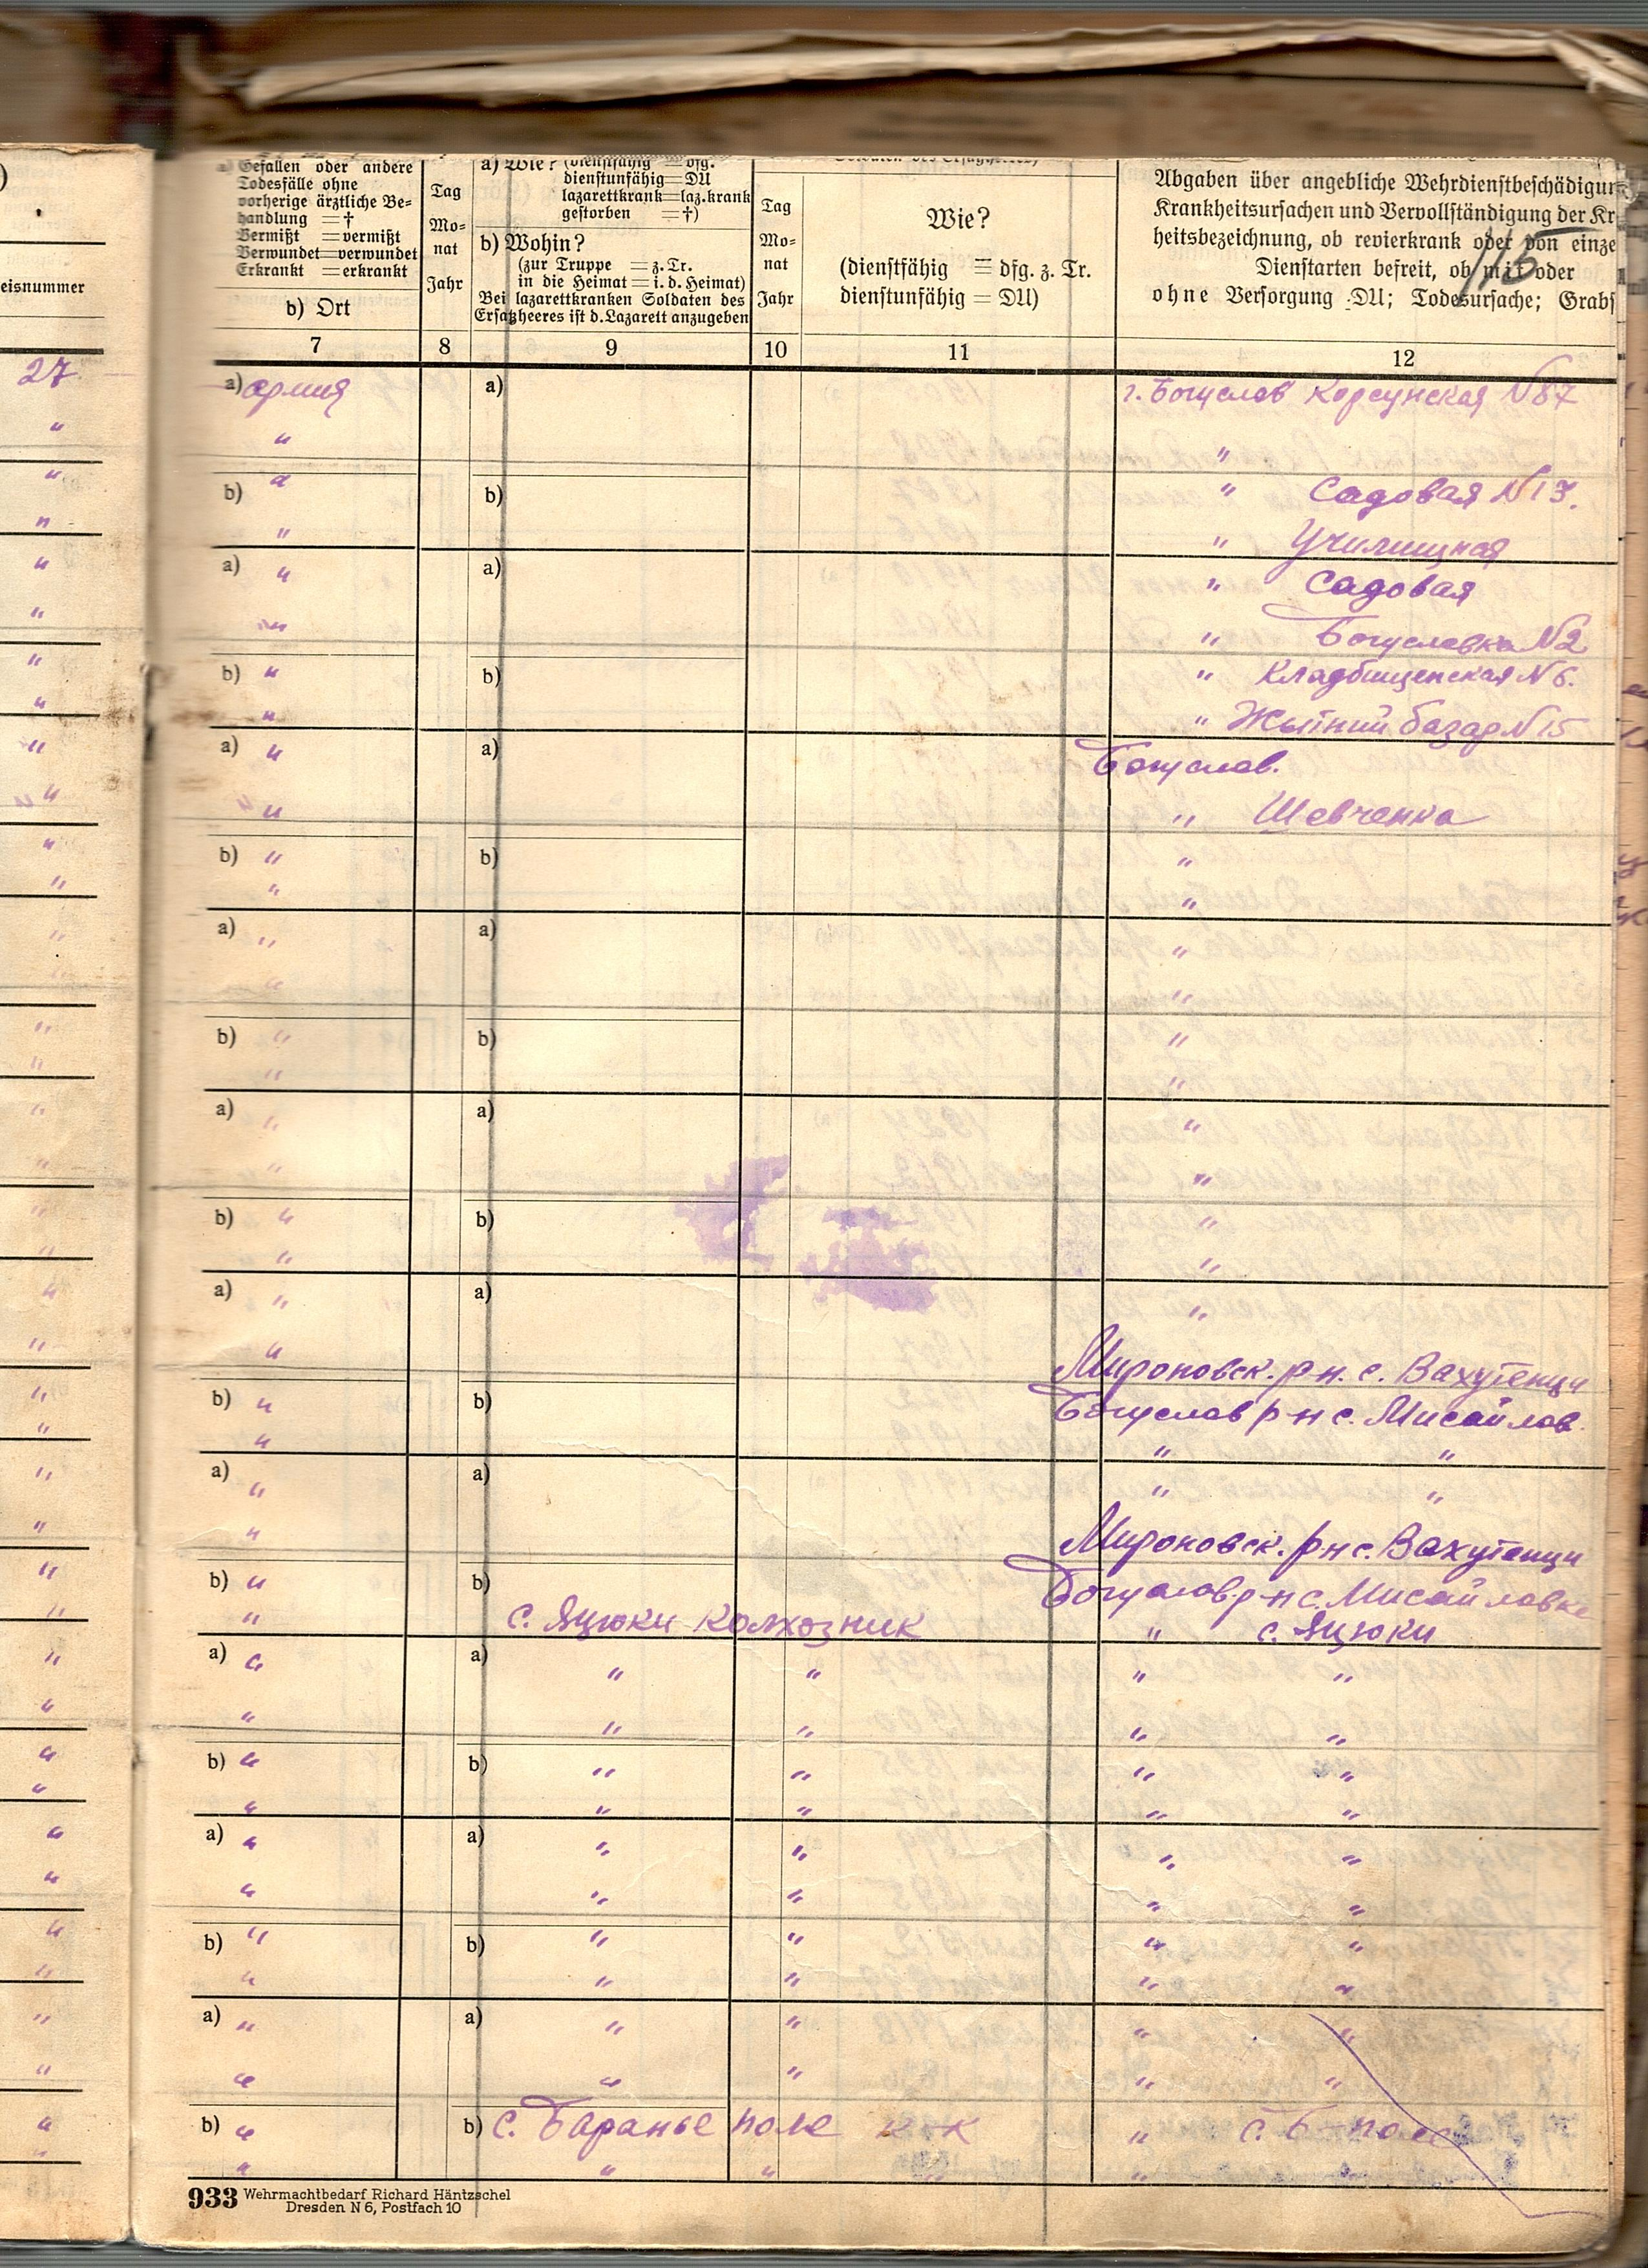 )
eisnummer
a) Gefallen oder andere
Todesfälle ohne
vorherige ärztliche Be-
handlung = †
Vermißt = vermißt
Verwundet = verwundet
Erkrankt = erkrankt
b) Ort
Tag
Mo-
nat
Jahr
a) Wie? (dienstfähig = dfg.
dienstunfähig = DU
lazarettkrank = laz.krank
gestorben = †)
b) Wohin?
(zur Truppe = z. Tr.
in die Heimat = i. d. Heimat)
Bei lazarettkranken Soldaten des
Ersatzheeres ist d. Lazarett anzugeben
Tag
Mo-
nat
Jahr
Wie?
(dienstfähig = dfg. z. Tr.
dienstunfähig = DU)
Abgaben über angebliche Wehrdienstbeschädigun
Krankheitsursachen und Vervollständigung der Kr
heitsbezeichnung, ob revierkrank oder von einze
Dienstarten befreit, ob mit oder
ohne Versorgung DU; Todesursache; Grabs
115
7 8 9 10 11 12
27 a) армия a) г. Богуслав Корсунская №87
" " "
" b) " b) " Садовая №13.
" " " Училищная
" a) " a) " Садовая
" " " Богуславка №2
" b) " b) " Кладбищенская №6.
" " " Жытний базар №15
" a) " a) Богуслав.
" " " Шевченка
" b) " b) "
" " "
" a) " a) "
" " "
" b) " b) "
" " "
" a) " a) "
" " "
" b) " b) "
" " "
" a) " a) "
" " Мироновск. р-н. с. Вахутенци
" b) " b) Богуслав р-н с. Мисайлов.
" " " "
" a) " a) " "
" " Мироновск. р-н с. Вахутенци
" b) " b) Богуслав. р-н с. Мисайловка
" " с. Яцюки колхозник " с. Яцюки
" a) " a) " " " "
" " " " " "
" b) " b) " " " "
" " " " " "
" a) " a) " " " "
" " " " " "
" b) " b) " " " "
" " " " " "
" a) " a) " " " "
" " " " " "
" b) " b) с. Баранье поле к-к " с. Б-поле
" " " " " "
933 Wehrmachtbedarf Richard Häntzschel
Dresden N 6, Postfach 10